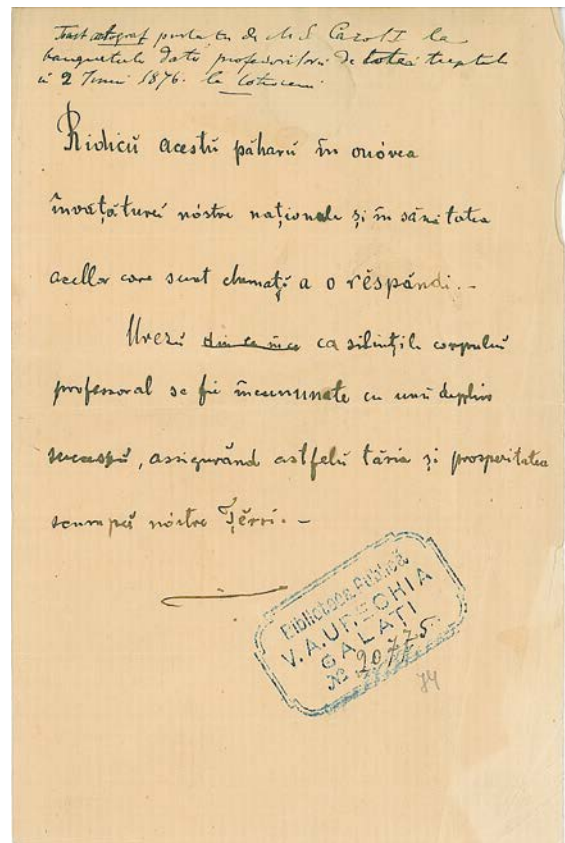 Toast autograf purtatu de M. S. Carol I la
banquetulu datu profesorilorŭ de totea treptele
in 2 Iunii 1876. la Cotroceni
Ridicŭ acestŭ păharŭ în onórea
învăţăturei nóstre naţionale şi în sănĕtatea
acellor care sunt chemaţi a o rĕspândi. -
Urezŭ din ca silinţile corpuluĭ
professoral se fie încununate cu unŭ deplin
succesŭ, assigurând astfelŭ tăria şi prosperitatea
scumpeĭ nóstre Ţĕrri. -
Biblioteca Publică
V. A. URECHIA
GALATI
№ 20775
74